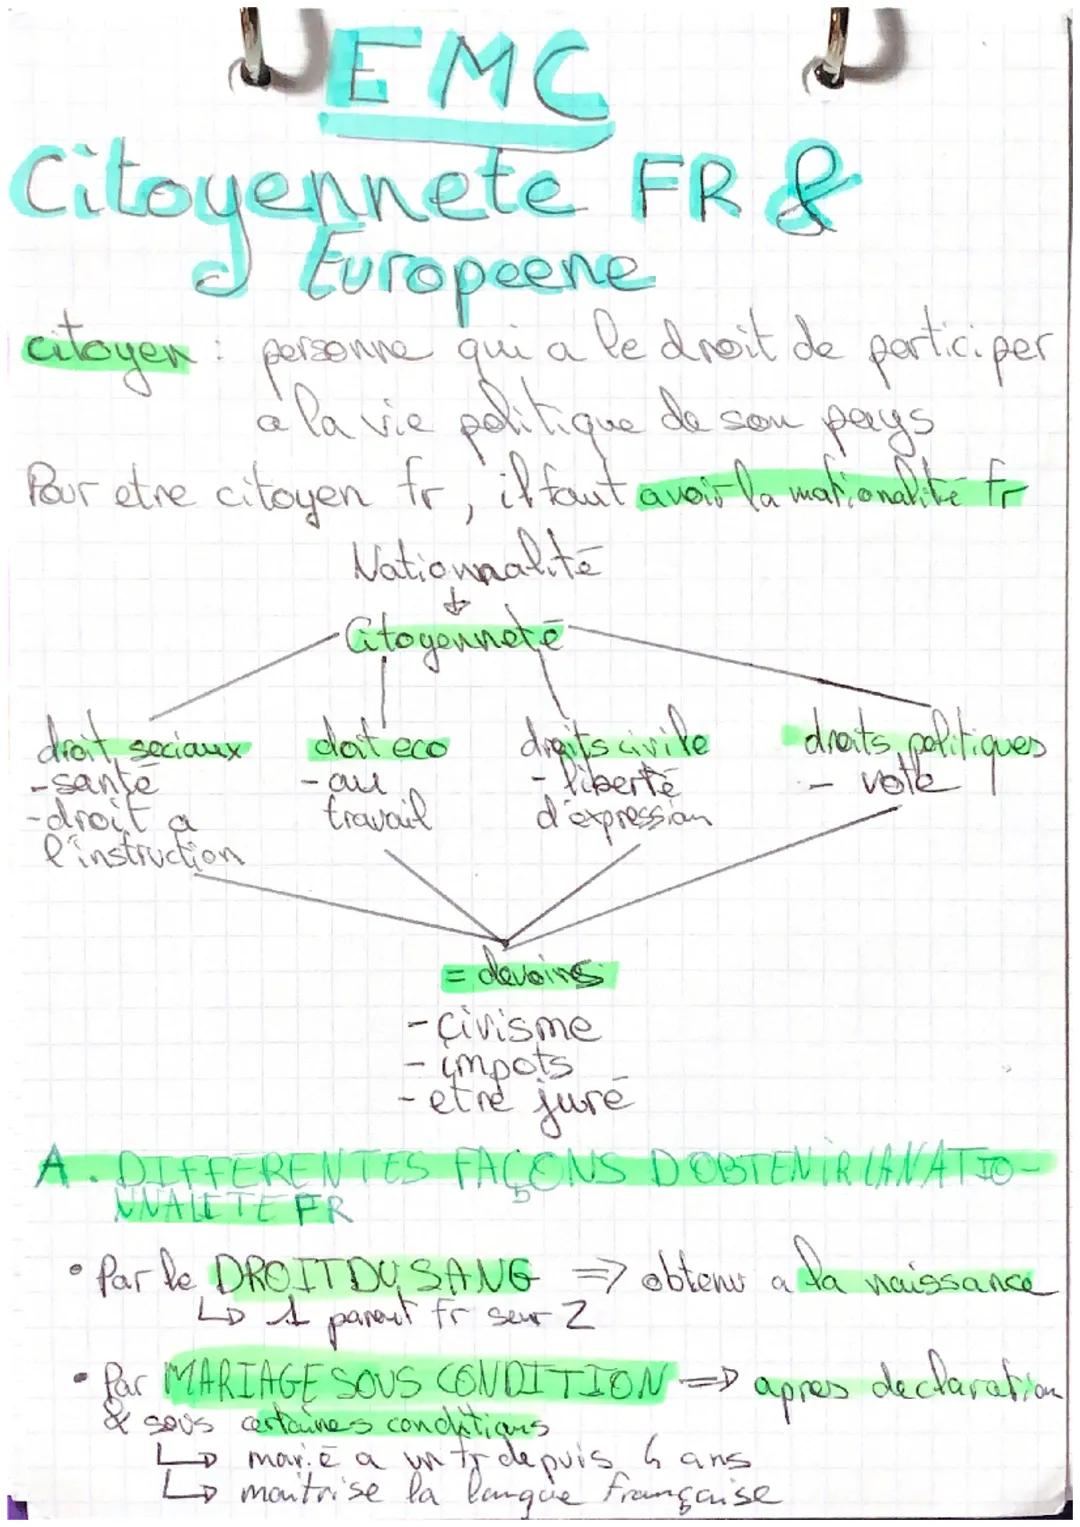 EMC
Citoyennete FR &
Europeene
citoyen : personne qui a le droit de participer
a la vie politique de son pays
Pour etre citoyen fr, il faut avoir la nationalité fr
Nationnalité
↓
Citoyenneté
droit sociaux
-santé
-droit a
l'instruction
doit eco
- au
travail
droits civile
- liberté
d'expression
droits politiques
- vote
= devoirs
- çivisme
- impots
- etre juré
A. DIFFERENTES FAÇONS D'OBTENIR LA NATIO-
NNALITE FR
• Par le DROIT DU SANG ⇒ obtenu a la naissance
↳ 1 parent fr sur 2
• Par MARIAGE SOUS CONDITION ⇒ apres declaration
& sous certaines conditions
↳ marié a un fr depuis 4 ans
↳ maitrise la langue française